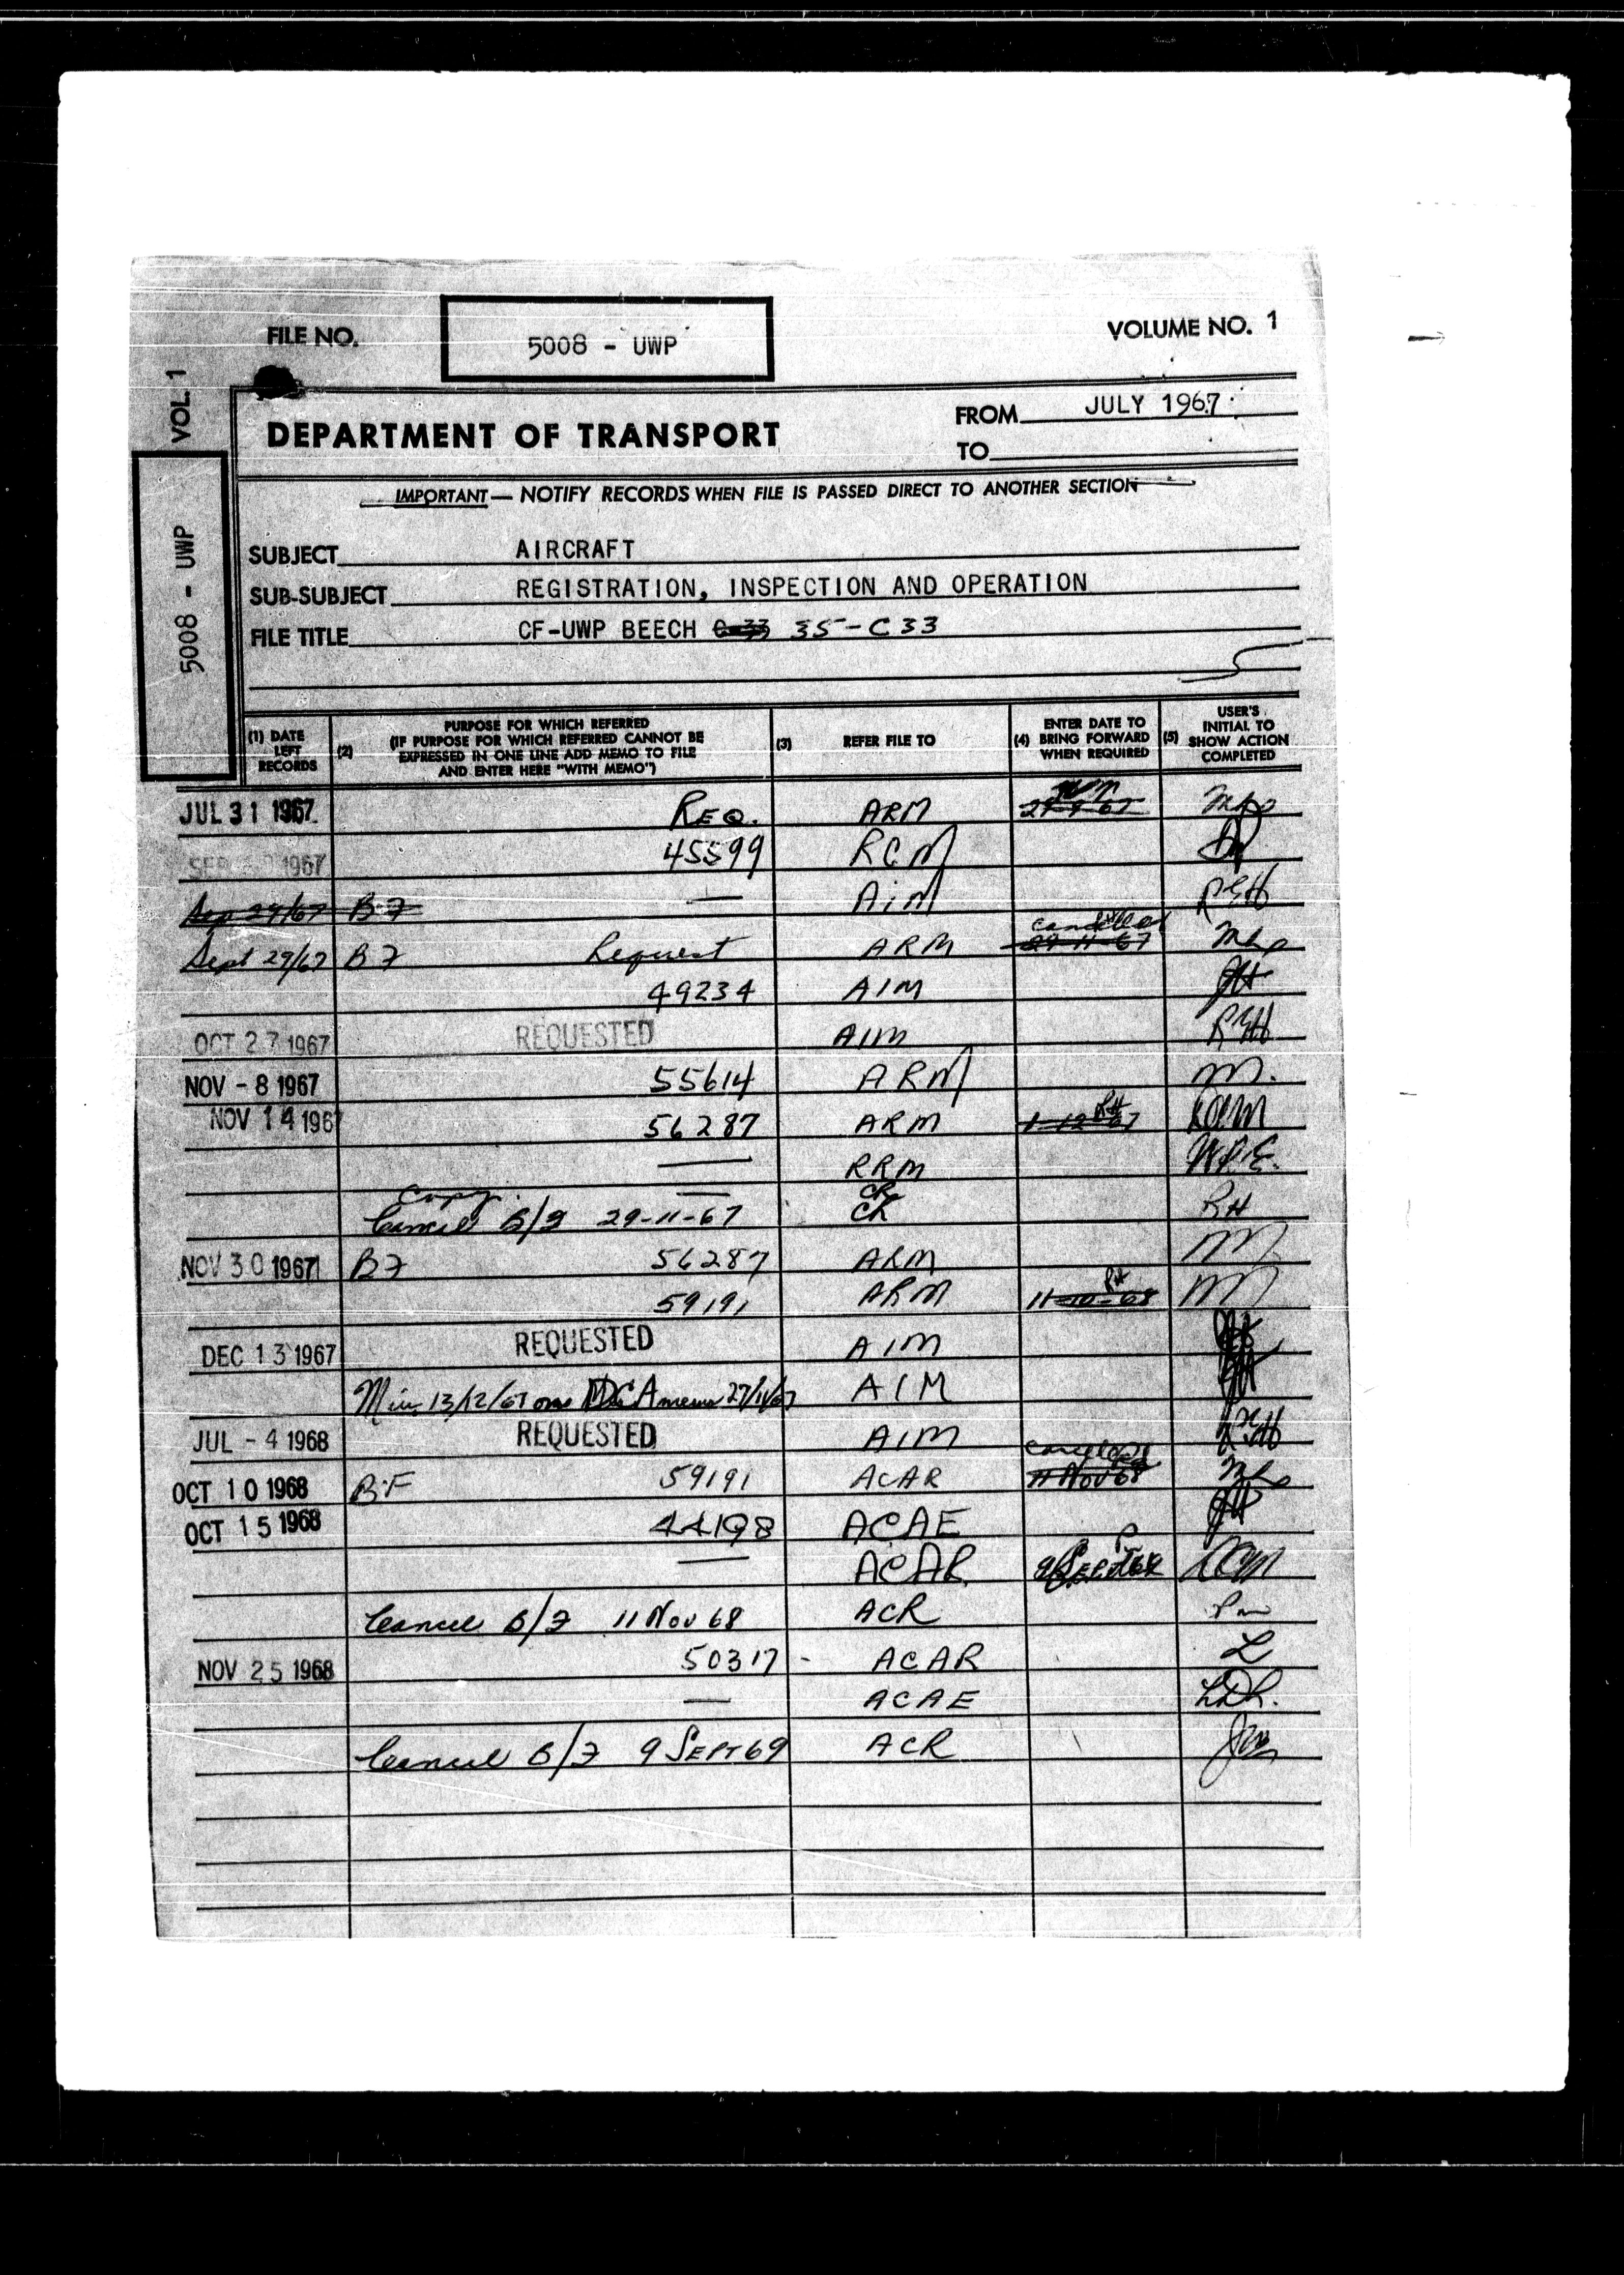 FILE NO.
5008 - UWP
VOLUME NO. 1
VOL. 1
5008 - UWP
DEPARTMENT OF TRANSPORT
FROM JULY 1967
TO
IMPORTANT — NOTIFY RECORDS WHEN FILE IS PASSED DIRECT TO ANOTHER SECTION
SUBJECT AIRCRAFT
SUB-SUBJECT REGISTRATION, INSPECTION AND OPERATION
FILE TITLE CF-UWP BEECH C-33 35-C33
(1) DATE LEFT RECORDS
(2) PURPOSE FOR WHICH REFERRED
(IF PURPOSE FOR WHICH REFERRED CANNOT BE
EXPRESSED IN ONE LINE ADD MEMO TO FILE
AND ENTER HERE "WITH MEMO")
(3) REFER FILE TO
(4) ENTER DATE TO BRING FORWARD WHEN REQUIRED
(5) USER'S INITIAL TO SHOW ACTION COMPLETED
JUL 31 1967 REQ. ARM
SEP 1967 45599 RCM
Sep 29/67 B7 — AIM RGH
Sept 29/67 B7 Request ARM cancelled 29-11-67
49234 AIM
OCT 27 1967 REQUESTED AIM RGH
NOV - 8 1967 55614 ARM M.
NOV 14 1967 56287 ARM 1-12-67 RH
— RRM
Copy — CR
Cancel B/7 29-11-67 CR RH
NOV 30 1967 B7 56287 ARM M
59191 ARM 11-10-68 RH M
DEC 13 1967 REQUESTED AIM
Min. 13/12/67 on DCA memo 27/11/67 AIM
JUL - 4 1968 REQUESTED AIM
OCT 10 1968 B.F 59191 ACAR cancelled 11 Nov 68
OCT 15 1968 44198 ACAE
— ACAR 9 SEPT 69
Cancel B/7 11 Nov 68 ACR
NOV 25 1968 50317 - ACAR L
— ACAE
Cancel B/7 9 SEPT 69 ACR